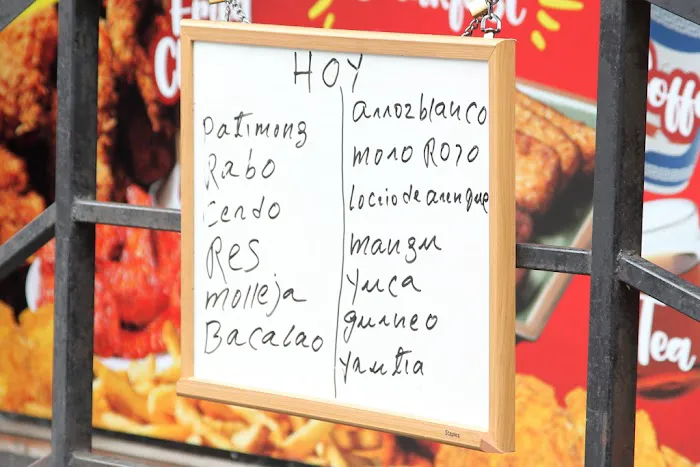 HOY
Patimong
Rabo
Cerdo
Res
molleja
Bacalao
arrozblanco
moro Rojo
locriodearenque
mangu
yuca
guineo
yautia
Staples
Tea